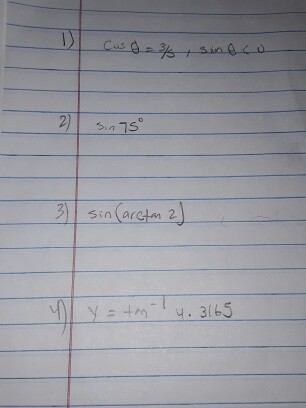 1) cos θ = 3/5, sin θ < 0
2) sin 75°
3) sin(arctan 2)
4) y = tan⁻¹ 4.3165